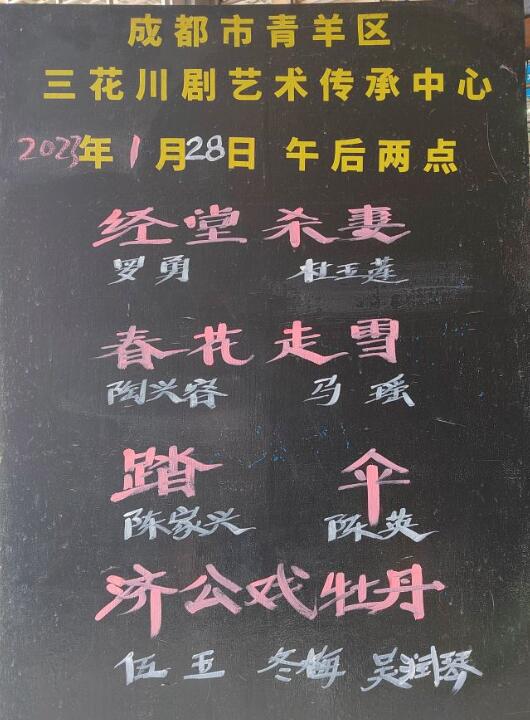 成都市青羊区
三花川剧艺术传承中心
2023年1月28日 午后两点
经堂杀妻
罗勇 杜玉莲
春花走雪
陶兴容 马瑶
踏伞
陈家兴 陈英
济公戏牡丹
伍五 冬梅 吴润琴